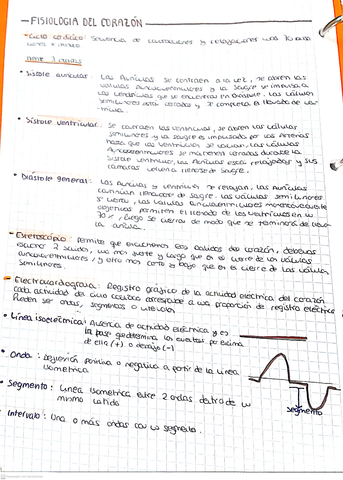 - FISIOLOGIA DEL CORAZÓN -
- Ciclo cardíaco: Secuencia de contracciones y relajaciones unas 70 
tiene 3 
• Sístole auricular: Las Aurículas se contraen a la vez, se abren las
válvulas auriculoventriculares y la sangre se impulsa a
los ventrículos que se encuentran en Diástole. Las válvulas
semilunares están cerradas y se completa el llenado de los
• Sístole ventricular: Se contraen los ventrículos, se abren las válvulas
semilunares y la sangre es impulsada por las arterias
hasta que los ventrículos se vacían, las válvulas
auriculoventriculares se mantienen cerradas durante la
Sístole ventricular, las Aurículas están relajadas y sus
cámaras vuelven a llenarse de sangre.
• Diástole general: Las aurículas y ventrículos se relajan, las Aurículas
continúan llenándose de sangre. Las válvulas semilunares
se cierran, las válvulas auriculoventriculares
permiten el llenado de los ventrículos en un
70%, luego se cierran de modo que se terminará de llenar
la aurícula.
- Permite que escuchemos los latidos del corazón, debemos
escuchar 2 sonidos, uno más fuerte y largo que es el cierre de las válvulas
auriculoventriculares, y otro más corto y bajo que es el cierre de las válvulas
semilunares.
- Electrocardiograma: Registro gráfico de la actividad eléctrica del corazón.
Cada actividad del ciclo cardíaco corresponde a una proporción de registro eléctrico
Pueden ser ondas, segmentos o intervalos
• Línea isoeléctrica: Ausencia de actividad eléctrica y es
la que determina los eventos por encima
de ella (+) o debajo (-)
• Onda: Deflexión positiva o negativa a partir de la línea
isométrica
• Segmento: Línea isométrica entre 2 ondas dentro de un
mismo latido
segmento
• Intervalo: Una o más ondas con un segmento.